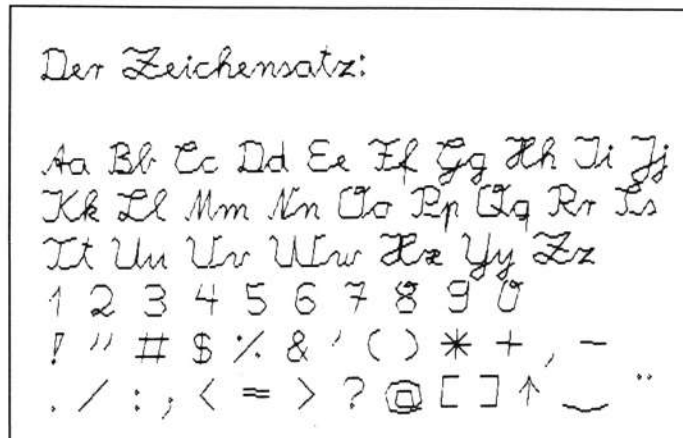 Der Zeichensatz:
Aa Bb Cc Dd Ee Ff Gg Hh Ii Jj
Kk Ll Mm Nn Oo Pp Qq Rr Ss
Tt Uu Vv Ww Xx Yy Zz
1 2 3 4 5 6 7 8 9 0
! " # $ % & ' ( ) * + , -
. / : ; < = > ? @ [ ] ↑ ‿ ¨